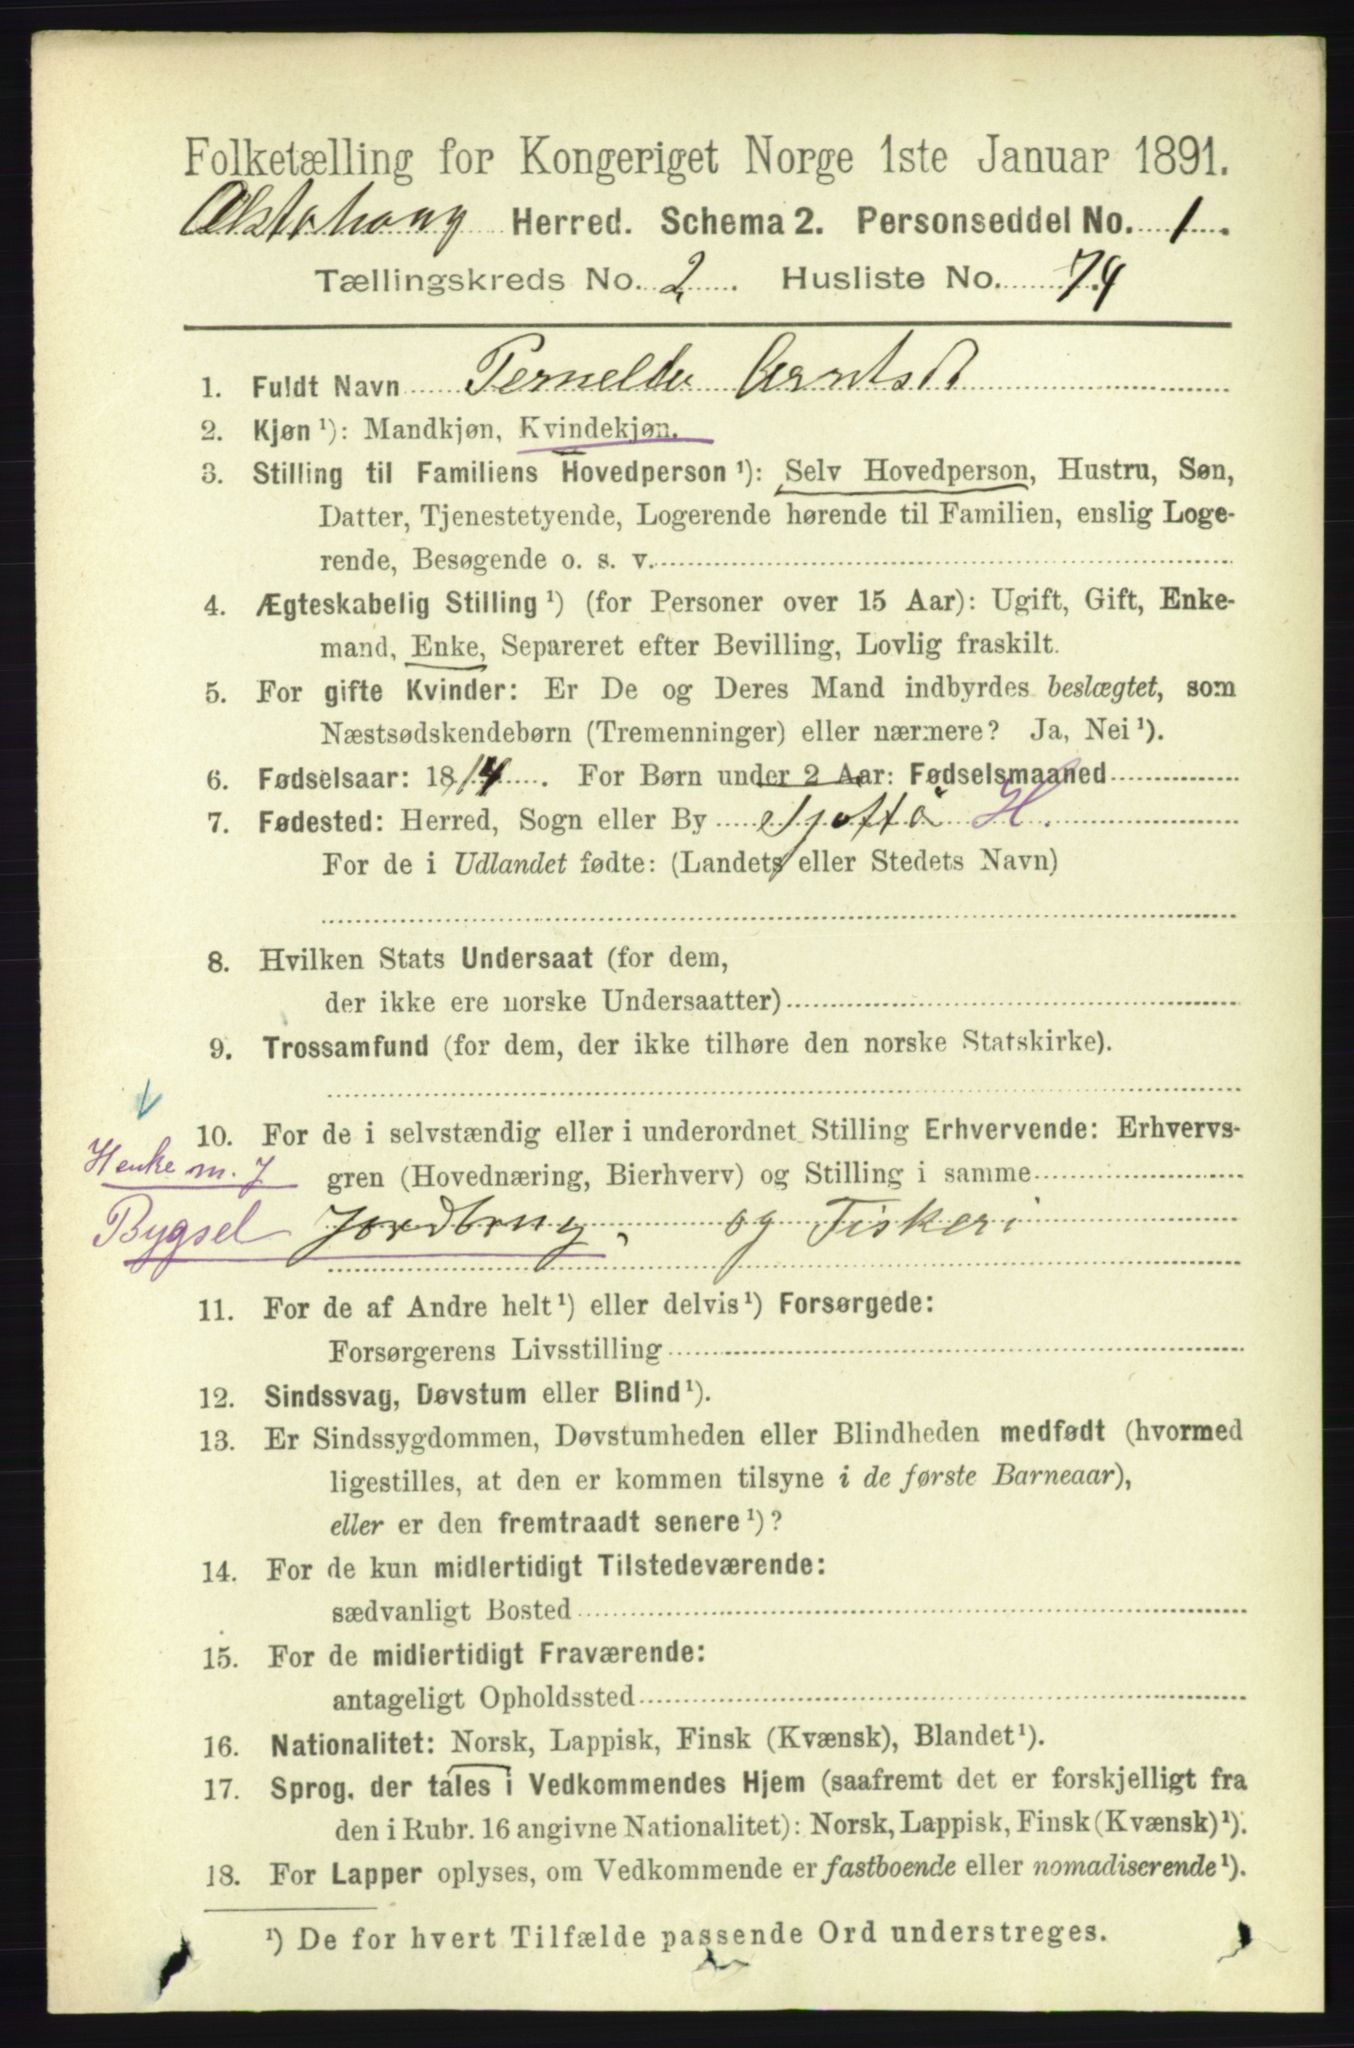 Folketælling for Kongeriget Norge 1ste Januar 1891.
Alstahaug Herred. Schema 2. Personseddel No. 1.
Tællingskreds No. 2. Husliste No. 74
1. Fuldt Navn Pernelder Arntsd
2. Kjøn ¹): Mandkjøn, Kvindekjøn.
3. Stilling til Familiens Hovedperson ¹): Selv Hovedperson, Hustru, Søn,
Datter, Tjenestetyende, Logerende hørende til Familien, enslig Loge-
rende, Besøgende o. s. v.
4. Ægteskabelig Stilling ¹) (for Personer over 15 Aar): Ugift, Gift, Enke-
mand, Enke, Separeret efter Bevilling, Lovlig fraskilt.
5. For gifte Kvinder: Er De og Deres Mand indbyrdes beslægtet, som
Næstsødskendebørn (Tremenninger) eller nærmere? Ja, Nei ¹).
6. Fødselsaar: 1814. For Børn under 2 Aar: Fødselsmaaned
7. Fødested: Herred, Sogn eller By Tjøtta H.
For de i Udlandet fødte: (Landets eller Stedets Navn)
8. Hvilken Stats Undersaat (for dem,
der ikke ere norske Undersaatter)
9. Trossamfund (for dem, der ikke tilhøre den norske Statskirke).
10. For de i selvstændig eller i underordnet Stilling Erhvervende: Erhvervs-
Henke m. J gren (Hovednæring, Bierhverv) og Stilling i samme
Bygsel Jordbrug, og Fiskeri
11. For de af Andre helt ¹) eller delvis ¹) Forsørgede:
Forsørgerens Livsstilling
12. Sindssvag, Døvstum eller Blind ¹).
13. Er Sindssygdommen, Døvstumheden eller Blindheden medfødt (hvormed
ligestilles, at den er kommen tilsyne i de første Barneaar),
eller er den fremtraadt senere ¹)?
14. For de kun midlertidigt Tilstedeværende:
sædvanligt Bosted
15. For de midlertidigt Fraværende:
antageligt Opholdssted
16. Nationalitet: Norsk, Lappisk, Finsk (Kvænsk), Blandet ¹).
17. Sprog, der tales i Vedkommendes Hjem (saafremt det er forskjelligt fra
den i Rubr. 16 angivne Nationalitet): Norsk, Lappisk, Finsk (Kvænsk) ¹).
18. For Lapper oplyses, om Vedkommende er fastboende eller nomadiserende ¹).
¹) De for hvert Tilfælde passende Ord understreges.